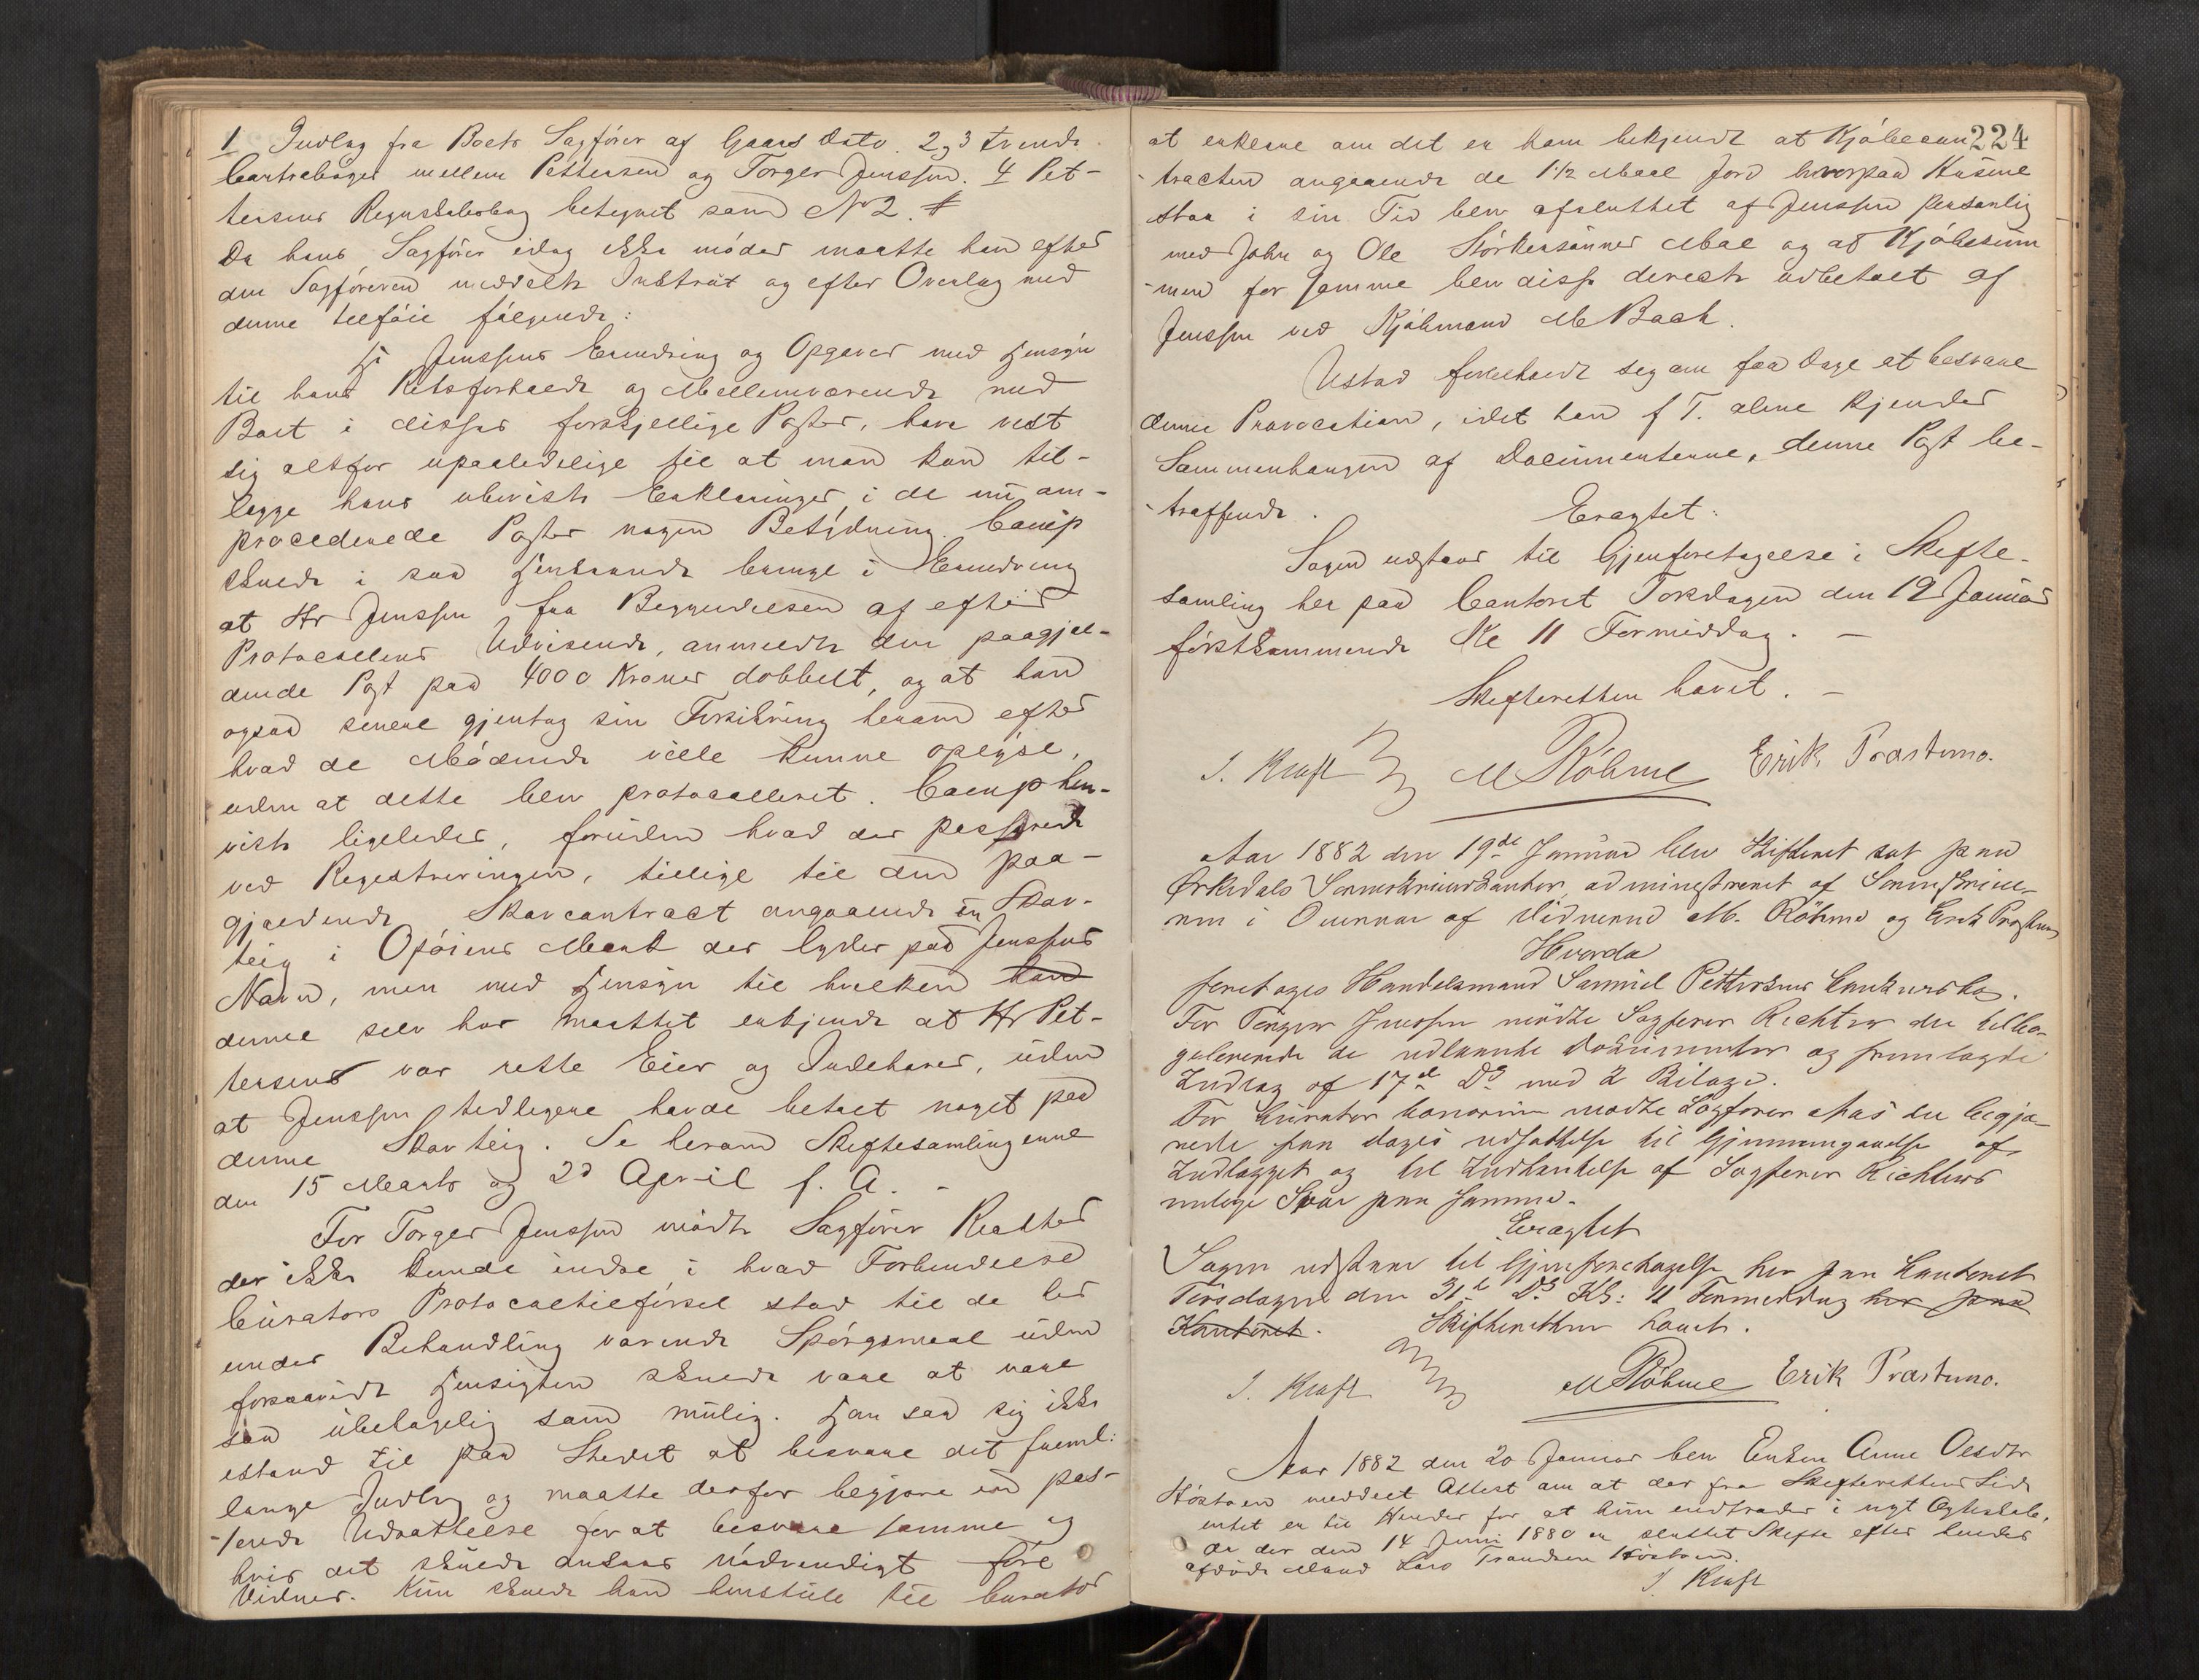 1 Indlæg fra Boets Sagfører af Gaars Dato. 2, 3 tvende
Contrabøger mellem Pettersen og Torger Jenssen. 4 Pet-
tersens Regnskabsbog betegnet som No 2.
Da hans Sagfører idag ikke møder maatte han efter
den Sagføreren meddelte Instrux og efter Overlæg med
denne tilføie følgende:
Hr Jenssens Erindring og Opgaver med Hensyn
til hans Retsforhold og Mellemværende med
Boet i disses forskjellige Poster, have vist
sig altfor upaalidelige til at man kan til-
lægge hans ubeviste Erklæringer i de nu om-
procederede Poster nogen Betydning. Camp
skulde i saa Henseende bringe i Erindring
at Hr Jenssen fra Begyndelsen af efter
Protocollens Udvisende, anmeldte den paagjæl-
dende Post paa 4000 Kroner dobbelt, og at han
ogsaa senere gjentog sin Forsikring herom efter
hvad de Mødende ville kunne oplyse,
uden at dette blev protocolleret. Camp hen-
viste ligeledes, foruden hvad der passerede
ved Registreringen, tillige til den paa-
gjældende Skovcontract angaaende en Skov-
teig i Opøiens Mark der lyder paa Jenssens
Navn, men med Hensyn til hvilken han
denne selv har maattet erkjende at Hr Pet-
tersens var rette Eier og Indehaver, uden
at Jenssen tidligere havde betalt noget paa
denne Skovteig. Se herom Skiftesamlingerne
den 15 Marts og 2d April f. A. -
For Torger Jenssen mødte Sagfører Richter
der ikke kunde indse i hvad Forbindelse
Curators Protocoltilførsel stod til de her
under Behandling værende Spørgsmaal uden
forsaavidt Hensigten skulde være at være
saa ubehagelig som mulig. Han saa sig ikke
istand til paa Stedet at besvare det freml:
lange Indlæg og maatte derfor begjære en pas-
sende Udsættelse for at besvare samme og
hvis det skulde ansees nødvendigt føre
Vidner. Kun skulde han henstille til Curator
224
at erklære om det er ham bekjendt at Kjøbecon-
tracten angaaende de 1 1/2 Maal Jord hvorpaa Husene
staa i sin Tid blev afsluttet af Jenssen personlig
med John og Ole Størkersønner Moe og at Kjøbesum-
men for samme blev disse directe udbetalt af
Jenssen ved Kjøbmand M Bach.
Ustad forbeholdt sig om faa Dage at besvare
denne Provocation, idet han f T. alene kjender
Sammenhængen af Documenterne, denne Post be-
træffende.
Eragtet:
Sagen udstaar til Gjenforetagelse i Skifte-
samling her paa Contoret Torsdagen den 19 Januar
førstkommende Kl 11 Formiddag. -
Skifteretten hævet. -
J. Kraft M Røhme Erik Præstmo.
Aar 1882 den 19de Januar blev Skifteret sat paa
Ørkedals Sorenskriverkontor, administreret af Sorenskrive-
ren i Overvær af Vidnerne M. Röhme og Erik Præstmo
Hvorda
foretoges Handelsmand Samuel Pettersens Konkursbo.
For Torger Jenssen mødte Sagfører Richter der tilba-
geleverede de udlaante Dokumenter og fremlagde
Indlæg af 17de Ds med 2 Bilage.
For Curator bonorum mødte Sagfører Aas der begjæ-
rede faa Dages udsættelse til Gjennemgaaelse af
Indlægget og til Indhentelse af Sagfører Richters
mulige Svar paa samme.
Eragtet
Sagen udstaar til Gjenforetagelse her paa Kontoret
Tirsdagen den 31te Ds Kl: 11 Formiddag her paa
Kontoret. Skifteretten hævet.
J. Kraft M Røhme Erik Præstmo.
Aar 1882 den 20 Januar blev Enken Anne Olesdtr
Høstven meddelt Attest om at der fra Skifterettens Side
intet er til Hinder for at hun indtræder i nyt Egteskab,
da der den 14 Juni 1880 er sluttet Skifte efter hendes
afdøde Mand Lars Trondsen Høstven.
J. Kraft